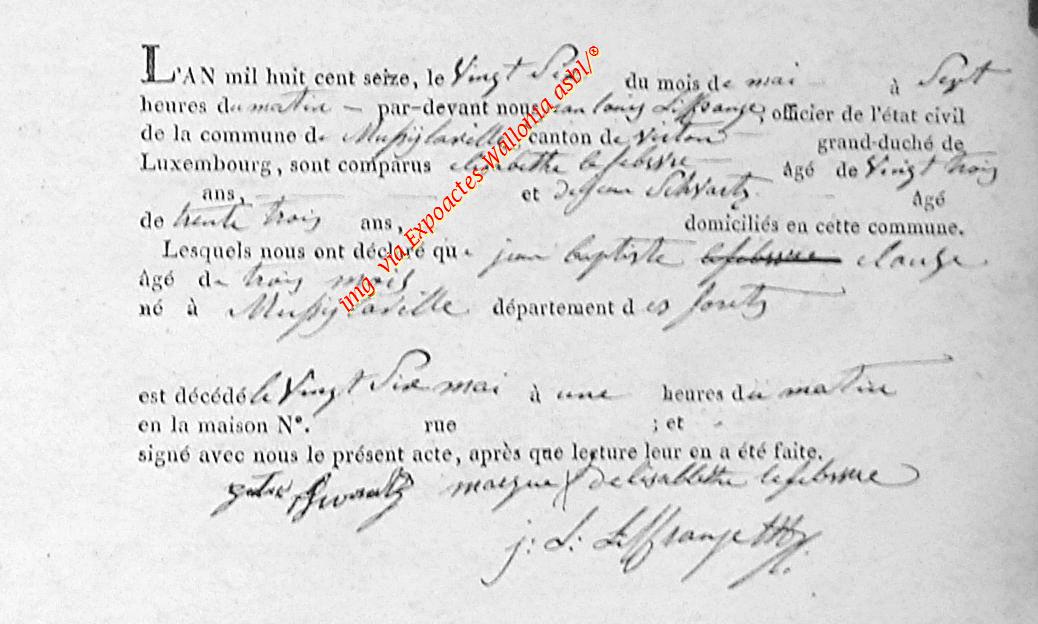 L'AN mil huit cent seize, le Vingt Six du mois de mai à Sept
heures du matin par-devant nous jean louis officier de l'état civil
de la commune de Mussylaville canton de virton grand-duché de
Luxembourg, sont comparus elisabethe lefebvre âgé de Vingt trois
ans, et Schvartz âgé
de trente trois ans, domiciliés en cette commune.
Lesquels nous ont déclaré que jean baptiste lefebvre clause
âgé de trois mois
né à Mussylaville département des forets
est décédé le Vingt Six mai à une heures du matin
en la maison N°. rue ; et
signé avec nous le présent acte, après que lecture leur en a été faite.
marque de lefebvre
j: L:
img via Expoactes Wallonia asbl/®